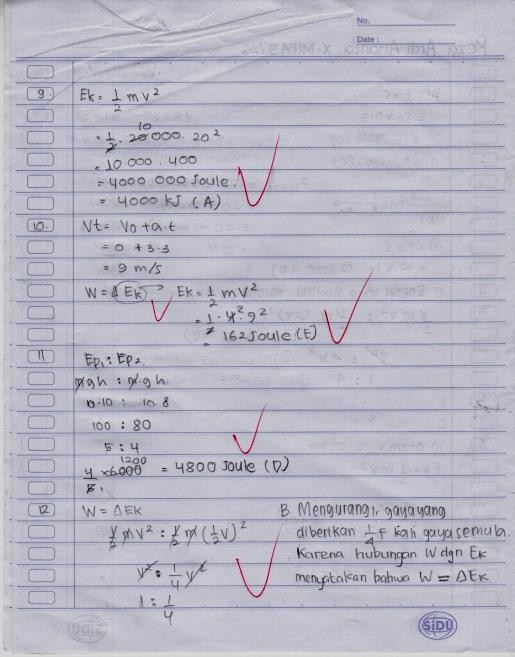 No.
Date :
9 Ek = 1/2 m v²
= 1/2 . 20 000 . 20²
10
= 10 000 . 400
= 4000 000 Joule.
= 4000 kJ (A)
10. Vt = Vo + a.t
= 0 + 3.3
= 9 m/s
W = Δ Ek Ek = 1/2 m V²
= 1/2 . 4² . 9²
= 162 Joule (E)
11 Ep₁ : Ep₂
m g h : m . g h
10.10 : 10.8
100 : 80
5 : 4
4/5 x 6000 = 4800 Joule (D)
1200
1
12 W = ΔEk
1/2 m V² : 1/2 m (1/2 V)²
V² : 1/4 V²
1 : 1/4
B. Mengurangi gaya yang
diberikan 1/4 F kali gaya semula.
Karena hubungan W dgn Ek
menyatakan bahwa W = ΔEk
SiDU